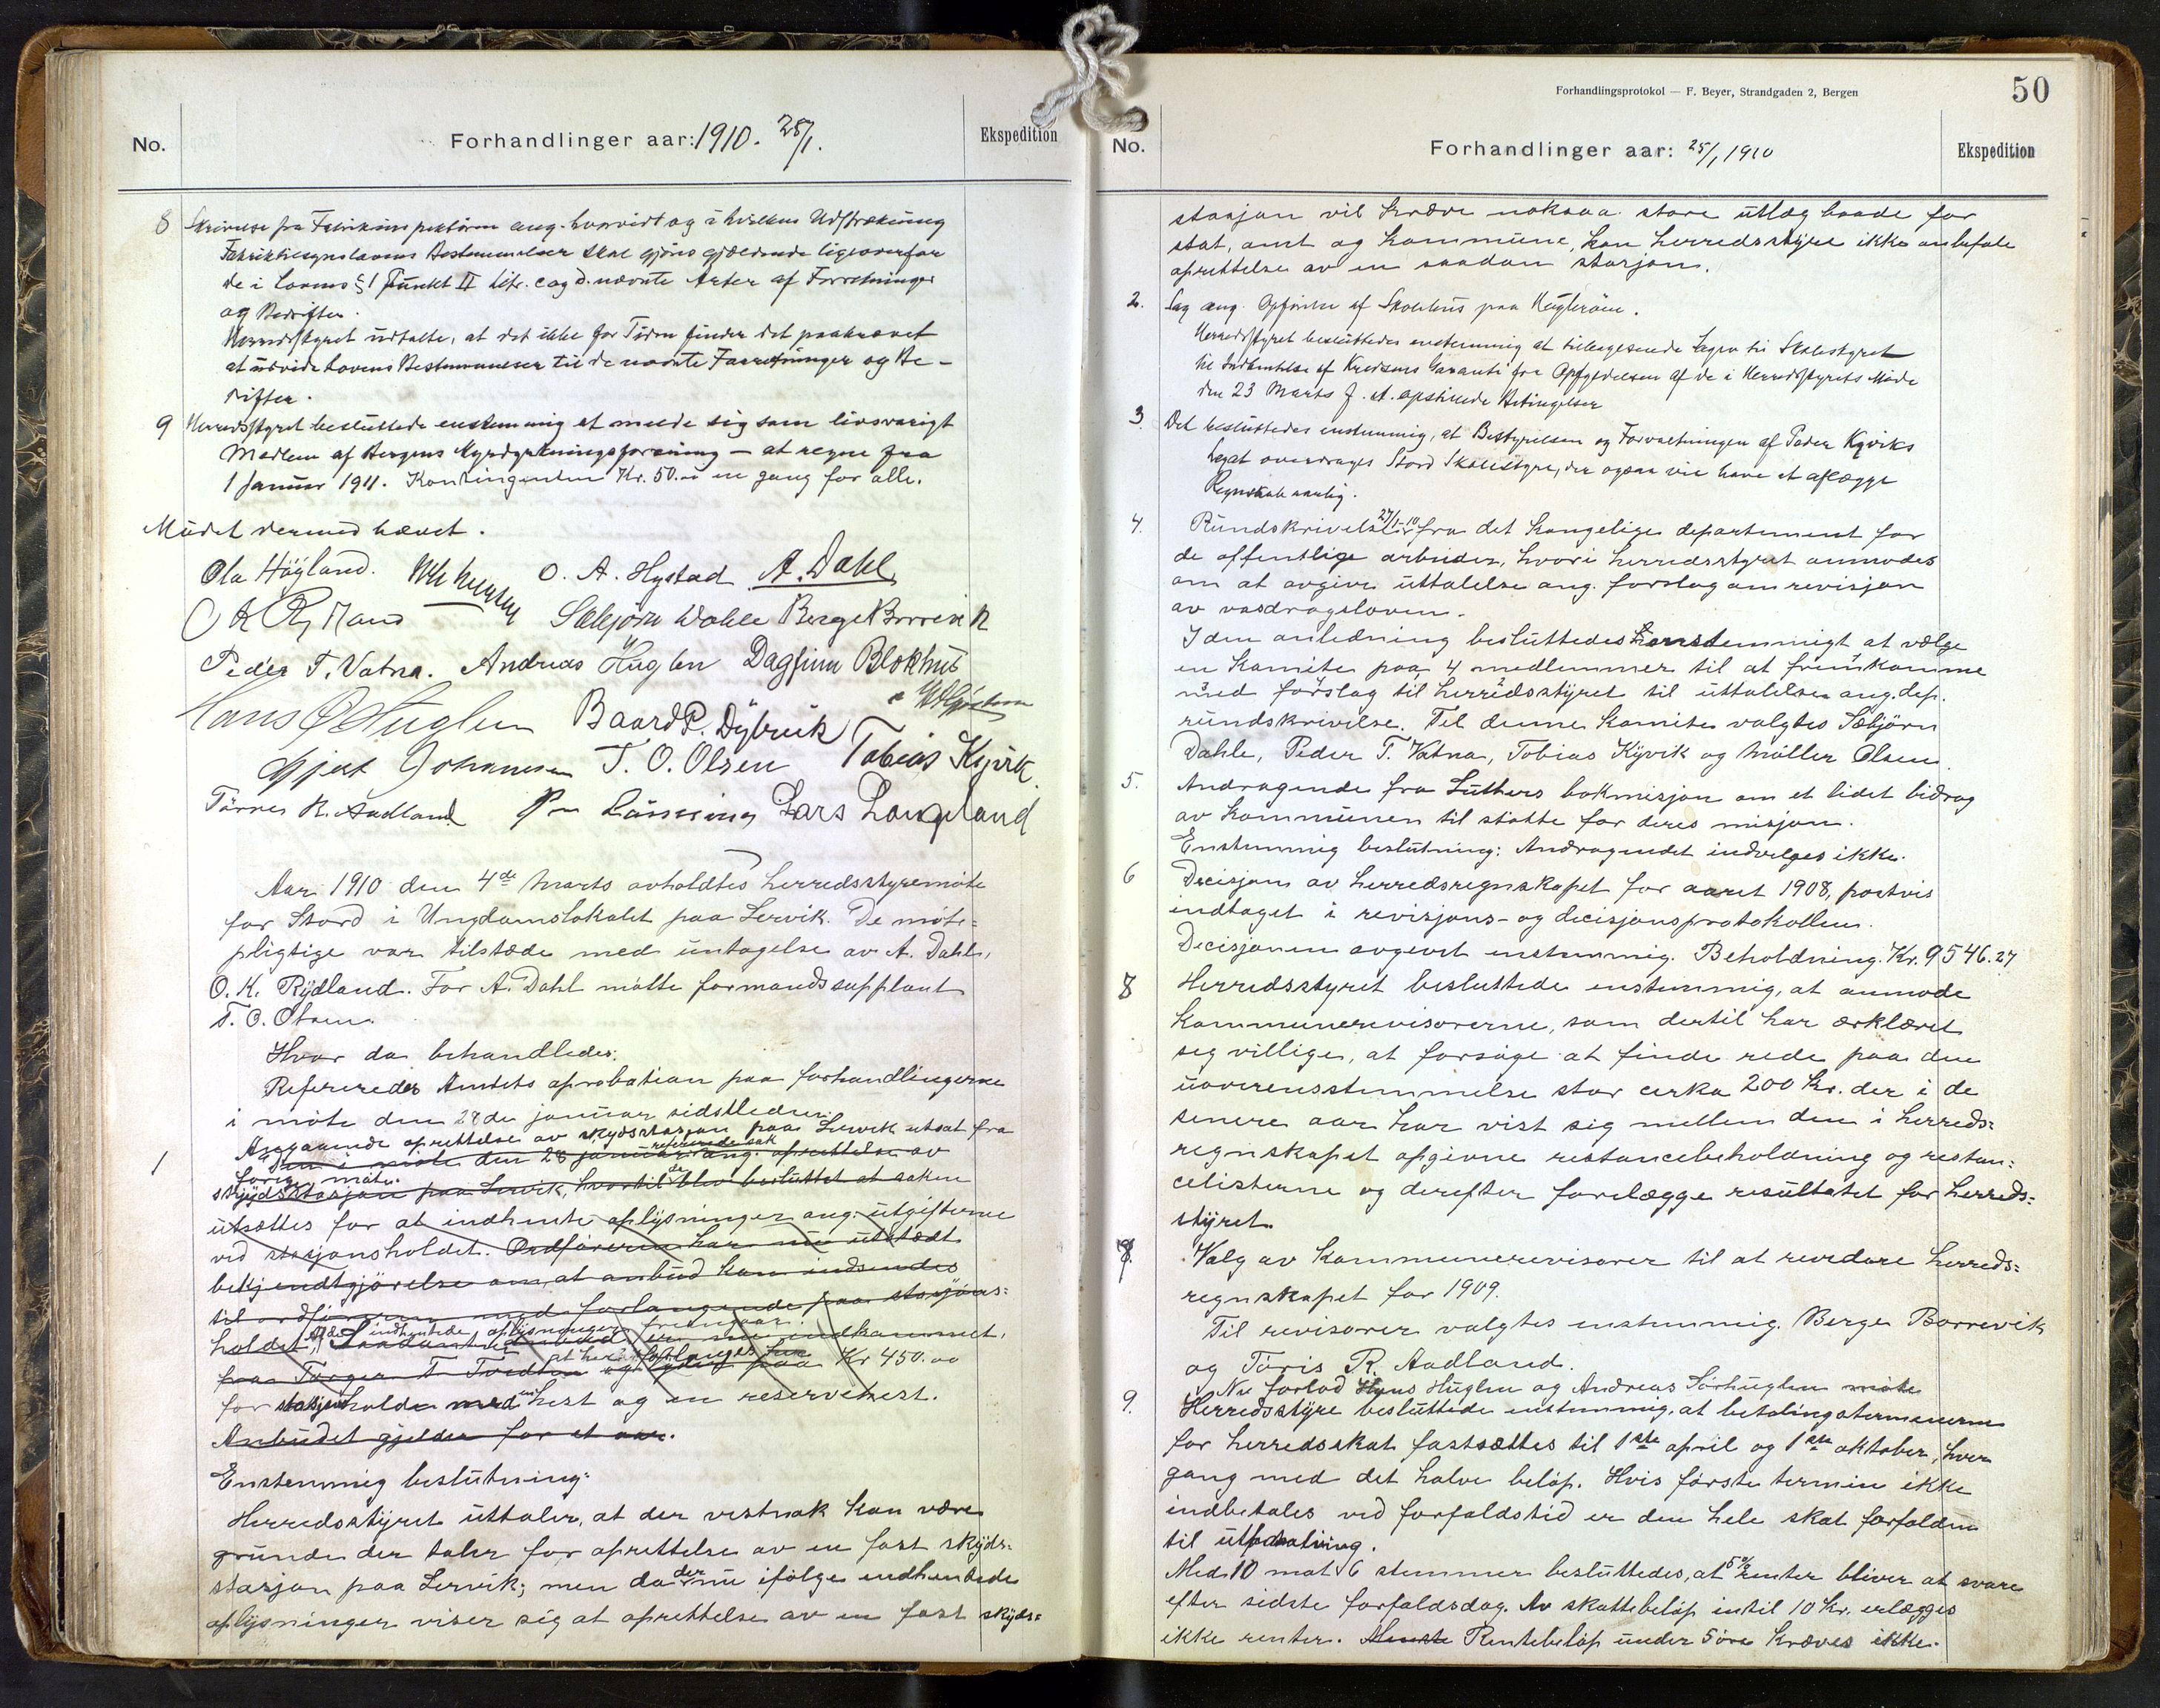 No. Forhandlinger aar: 1910. 25/1. Ekspedition
8 Skrivelse fra Fabrikinspektören ang. hvorvidt og i hvilken Udstrækning
Fabriktilsynslovens Bestemmelser skal gjöres gjældende ligeoverfor
de i Lovens § 1 Punkt II litr. c og d. nævnte Arter af Forretninger
og Bedrifter.
Herredsstyret udtalte, at det ikke for Tiden finder det paakrævet
at udvide Lovens Bestemmelser til de nævnte Forretninger og Be-
drifter.
9 Herredsstyret besluttede enstemmig at melde sig som livsvarigt
Medlem af Bergens Myrdyrkningsforening — at regne fra
1 Januar 1911. Kontingenten Kr. 50.00 en gang for alle.
Mödet dermed hævet.
Ola Högland. O. A. Hystad A. Dahl
O K Rydland Sæbjörn Dahle Berge Borrevik
Peder T. Vatna. Andreas Huglen Dagfinn Blokhus
Hans O Huglen Baard P. Dybvik
Gjert Johannesen T. O. Olsen Tobias Kyvik
Törres R. Aadland Lönning Lars Langeland
Aar 1910 den 4de marts avholdtes herredsstyremöte
for Stord i Ungdomslokalet paa Lervik. De möte=
pligtige var tilstæde med untagelse av A. Dahl,
O. K. Rydland. For A. Dahl mötte formandssupplant
T. O. Olsen.
Hvor da behandledes:
Refereredes Amtets aprobation paa forhandlingerne
i möte den 28de januar sidstleden.
Angaaende oprettelse av skydsstasjon paa Lervik utsat fra
1 Den i möte den 28 januar refererede sak ang. oprettelse av
forige möte.
skydsstasjon paa Lervik, hvortil det blev besluttet at saken
utsættes for at indhente oplysninger ang. utgifterne
ved stasjonsholdet. Ordföreren har nu utstædt
bekjendtgjörelse om, at anbud kan indsendes
til ordföreren med forlangende paa stasjons=
holdet. Af de indhentede oplysninger fremgaar
Saadant anbud er nu indkommet,
at her forlanges
fra Torger T. Tveiten og lydt paa Kr 450.00
for stasjonsholdet med en hest og en reservehest.
Anbudet gjelder for et aar.
Enstemmig beslutning:
Herredsstyret uttaler, at der vestnok kan være
grunde der taler for oprettelse av en fast skyds=
stasjon paa Lervik; men da der nu ifölge indhentede
oplysninger viser sig at oprettelse av en fast skyds=
Forhandlingsprotokol — F. Beyer, Strandgaden 2, Bergen 50
No. Forhandlinger aar: 25/1 1910 Ekspedition
stasjon vil kræve noksaa store utlæg baade for
stat, amt og kommune, kan herredsstyre ikke anbefale
oprettelse av en saadan stasjon.
2. Sag ang. Opförelse af Skolehus paa Hugleröen.
Herredsstyret besluttedes enstemmig at tilbagesende Sagen til Skolestyret
til Indhentelse af Kredsens Garanti for Opfyldelsen af de i Herredsstyrets Möde
den 23 Marts f. A. opstillede Betingelser
3. Det besluttedes enstemmig, at Bestyrelsen og Forvaltningen af Peder Kyviks
Legat overdrages Stord Skolestyre, der ogsaa vil have at aflægge
Regnskab aarlig.
4. Rundskrivelse 27/1-10 fra det kongelige departement for
de offentlige arbeider, hvori herredsstyret anmodes
om at avgive uttalelse ang. forslag om revisjon
av vasdragsloven.
I den anledning besluttedes enstemmigt at vælge
en komite paa 4 medlemmer til at fremkomme
med forslag til herredsstyret til uttalelse ang. dep.
rundskrivelse. Til denne komite valgtes Sæbjörn
Dahle, Peder T. Vatna, Tobias Kyvik og Möller Olsen.
5. Andragende fra Luthers bokmisjon om et lidet bidrag
av kommunen til stötte for deres misjon.
Enstemmig beslutning: Andragendet indvilges ikke.
6 Decisjon av herredsregnskapet for aaret 1908, postvis
indtaget i revisjons- og decisjonsprotokollen.
Decisjonen avgevet enstemmig. Beholdning Kr. 9546.27
8 Herredsstyret besluttede enstemmig, at anmode
kommunerevisorerne, som dertil har erklæret
seg villige, at forsöge at finde rede paa den
uoverensstemmelse stor cirka 200 Kr. der i de
senere aar har vist sig mellem den i herreds=
regnskapet opgivne restancebeholdning og restan=
celisterne og derefter forelægge resultatet for herreds=
styret.
7. Valg av kommunerevisorer til at revidere herreds=
regnskapet for 1909.
Til revisorer valgtes enstemmig. Berge Borrevik
og Töris R. Aadland.
Nu forlod Hans Huglen og Andreas Sörhuglen möte
9. Herredsstyre besluttede enstemmig, at betalingsterminerne
for herredsskat fastsættes til 1ste april og 1ste oktober, hver
gang med det halve belöp. Hvis förste termin ikke
indbetales ved forfaldstid er den hele skat forfalden
til utpantning.
Med 10 mot 6 stemmer besluttedes, at 5% renter bliver at svare
efter sidste forfaldsdag. Av skattebelöp intil 10 Kr. erlægges
ikke renter. Rentebelöp under 5 öre kræves ikke.